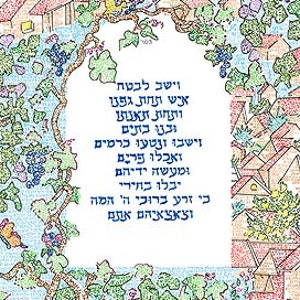 וישב לבטח
איש תחת גפנו
ותחת תאנתו
ובנו בתים
וישבו ונטעו כרמים
ואכלו פרים
ומעשה ידיהם
יבלו בחירי
כי זרע ברוכי ה' המה
וצאצאיהם אתם